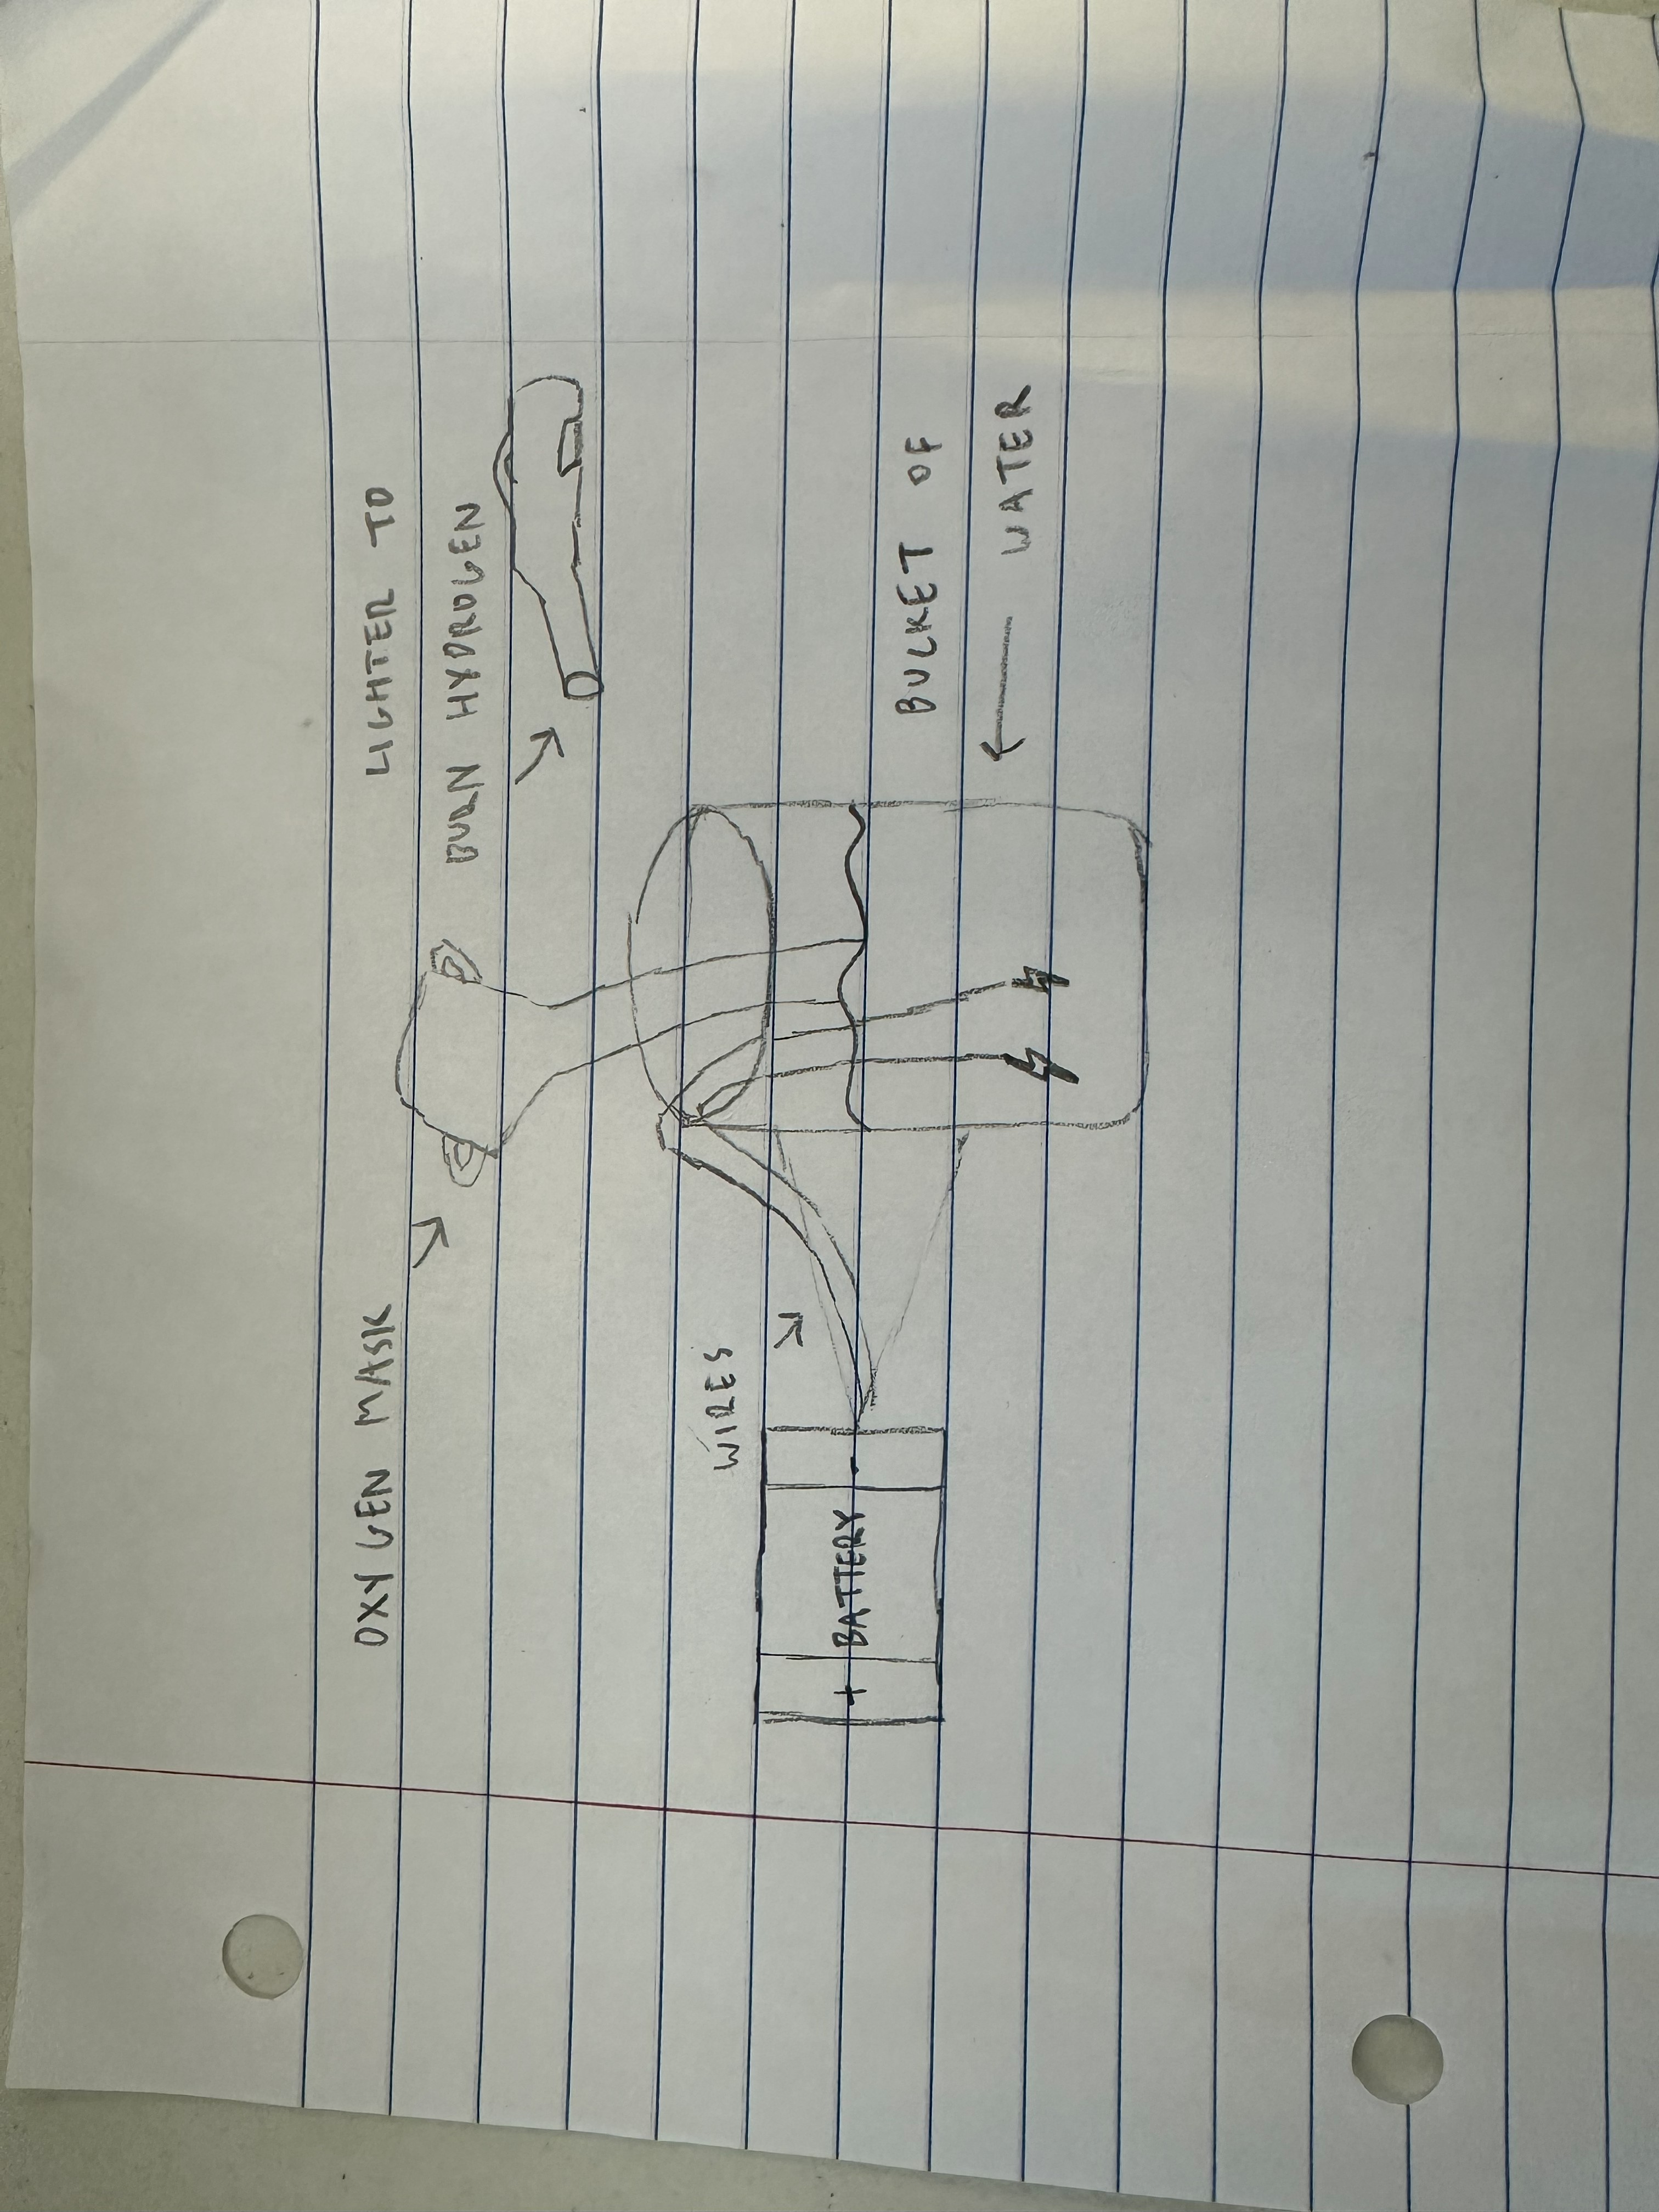 OXYGEN MASK
LIGHTER TO
BURN HYDROGEN
WIRES
+ BATTERY -
BUCKET OF
WATER